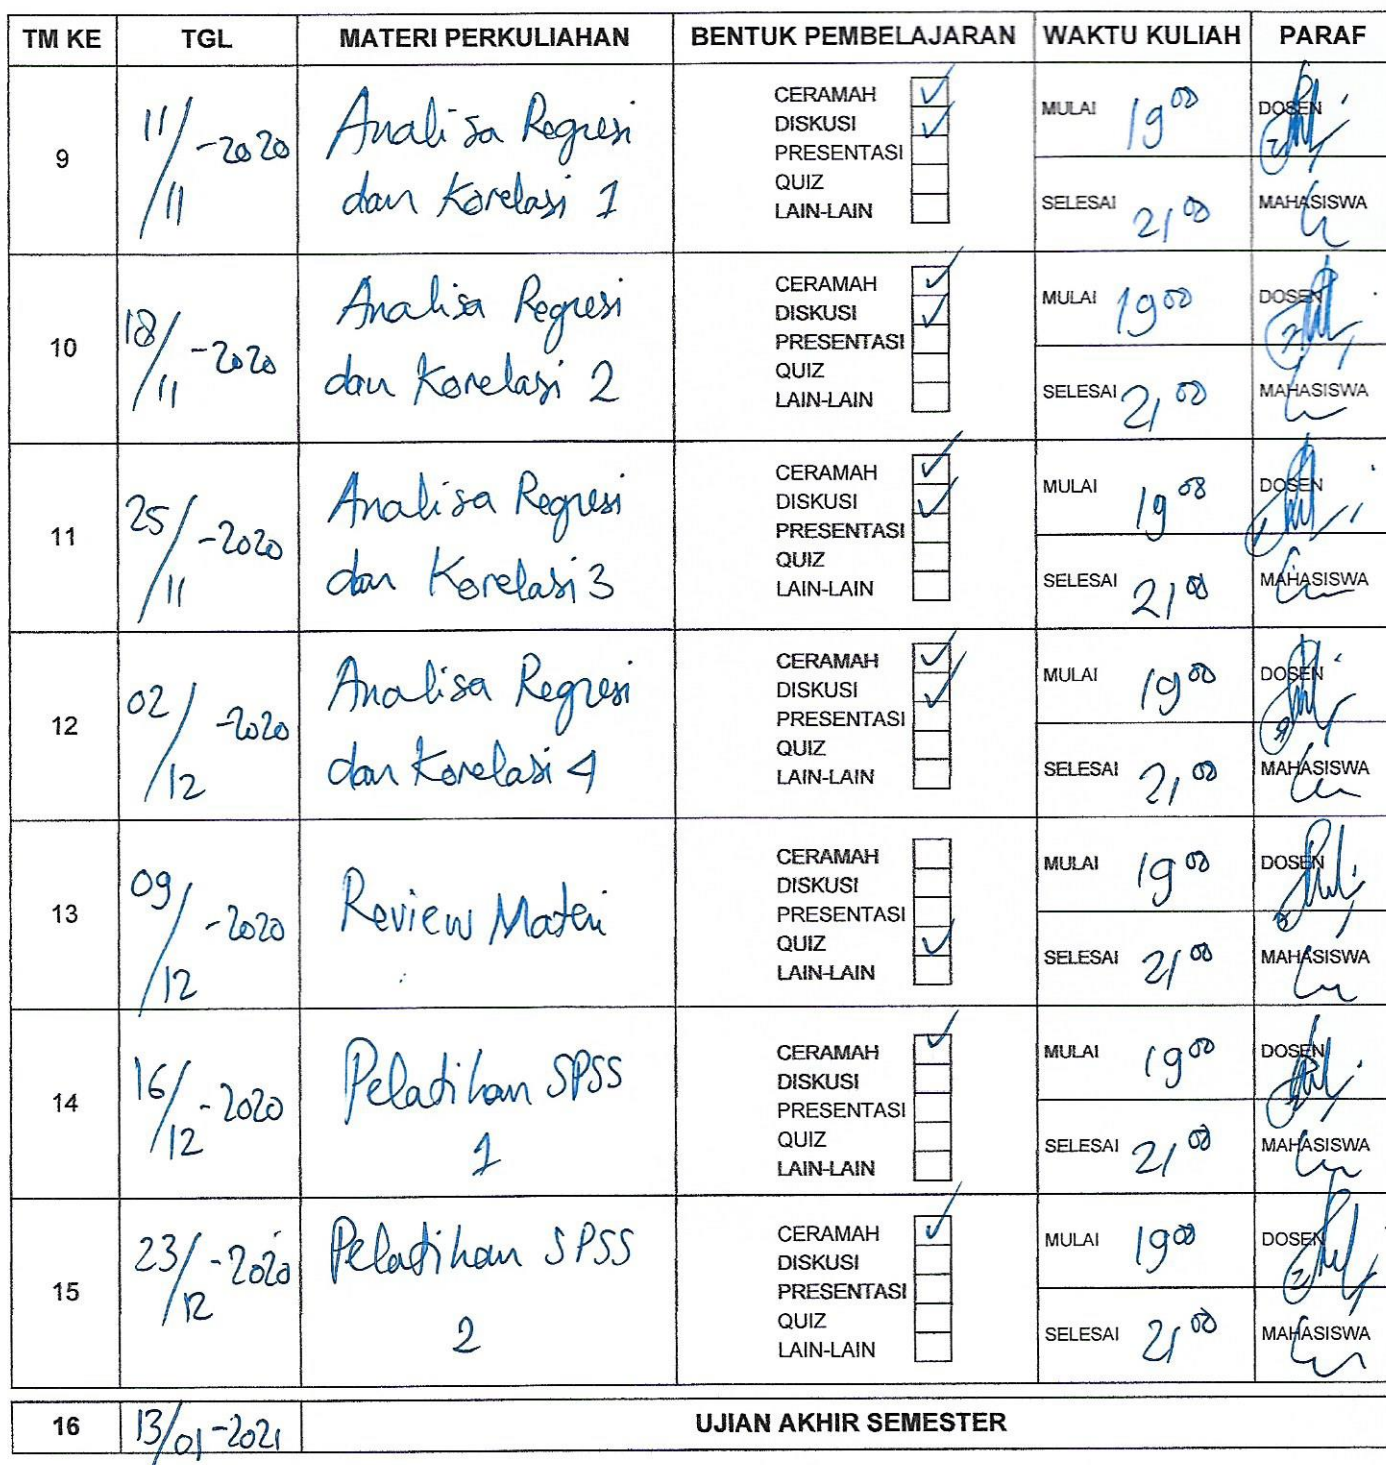 TM KE TGL MATERI PERKULIAHAN BENTUK PEMBELAJARAN WAKTU KULIAH PARAF
9
11/11-2020
Analisa Regresi
dan Korelasi 1
CERAMAH
DISKUSI
PRESENTASI
QUIZ
LAIN-LAIN
MULAI 19 00
SELESAI 21 00
DOSEN
MAHASISWA
10
18/11-2020
Analisa Regresi
dan Korelasi 2
CERAMAH
DISKUSI
PRESENTASI
QUIZ
LAIN-LAIN
MULAI 19 00
SELESAI 21 00
DOSEN
MAHASISWA
11
25/11-2020
Analisa Regresi
dan Korelasi 3
CERAMAH
DISKUSI
PRESENTASI
QUIZ
LAIN-LAIN
MULAI 19 00
SELESAI 21 00
DOSEN
MAHASISWA
12
02/12-2020
Analisa Regresi
dan Korelasi 4
CERAMAH
DISKUSI
PRESENTASI
QUIZ
LAIN-LAIN
MULAI 19 00
SELESAI 21 00
DOSEN
MAHASISWA
13
09/12-2020
Review Materi
CERAMAH
DISKUSI
PRESENTASI
QUIZ
LAIN-LAIN
MULAI 19 00
SELESAI 21 00
DOSEN
MAHASISWA
14
16/12-2020
Pelatihan SPSS
1
CERAMAH
DISKUSI
PRESENTASI
QUIZ
LAIN-LAIN
MULAI 19 00
SELESAI 21 00
DOSEN
MAHASISWA
15
23/12-2020
Pelatihan SPSS
2
CERAMAH
DISKUSI
PRESENTASI
QUIZ
LAIN-LAIN
MULAI 19 00
SELESAI 21 00
DOSEN
MAHASISWA
16 13/01-2021 UJIAN AKHIR SEMESTER